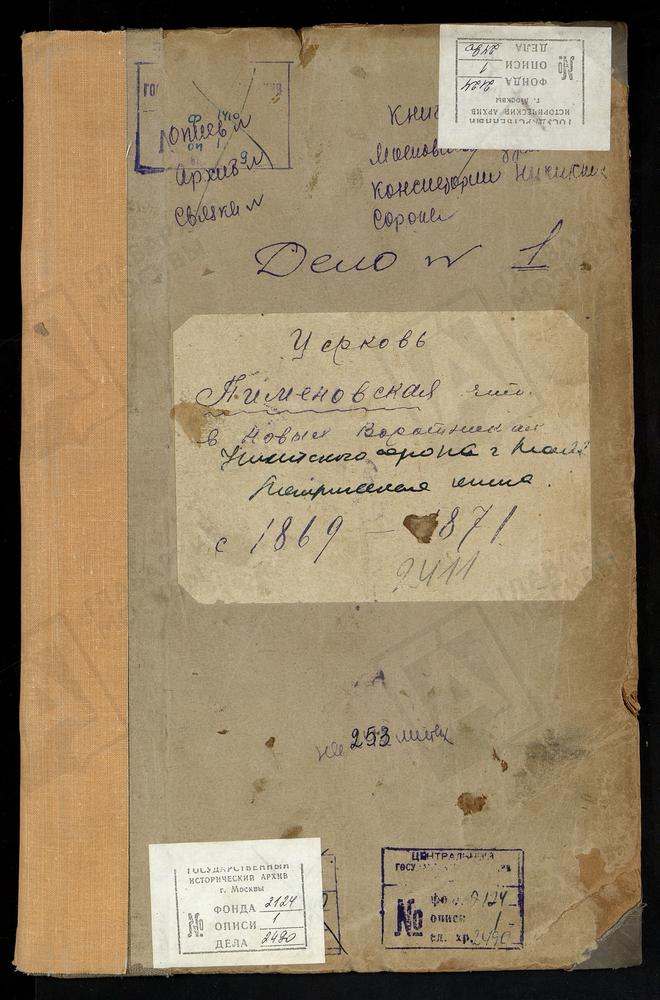 ГОСУДАРСТВЕННЫЙ
ИСТОРИЧЕСКИЙ АРХИВ
г. Москвы
№
ФОНДА 2124
ОПИСИ 1
ДЕЛА 2480
Ф 1410
оп 1
Описев №
Архив №
Связка №
Книг
Консистории
Сорока
Дело № 1
Церковь
Пименовская
в Новых Воротниках
Никитского сорока г
Метрическая книга.
с 1869 – 1871
2411
на 253 листах
ГОСУДАРСТВЕННЫЙ
ИСТОРИЧЕСКИЙ АРХИВ
г. Москвы
№
ФОНДА 2124
ОПИСИ 1
ДЕЛА 2480
ЦЕНТРАЛЬНЫЙ
№
фонд 2124
описи 1
ед. хр. 2480